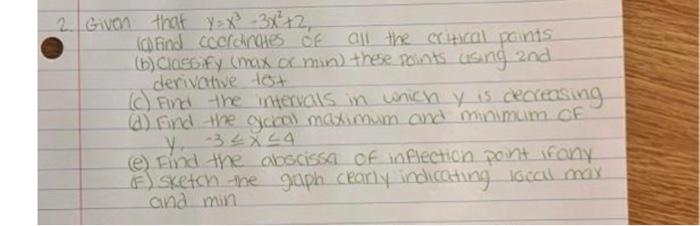 2. Given that y=x³-3x²+2,
(a) Find coordinates of all the critical points
(b) Classify (max or min) these points using 2nd
derivative test
(c) Find the intervals in which y is decreasing
(d) Find the global maximum and minimum of
y, -3≤x≤4
(e) Find the abscissa of inflection point if any
(F) sketch the gaph clearly indicating local max
and min